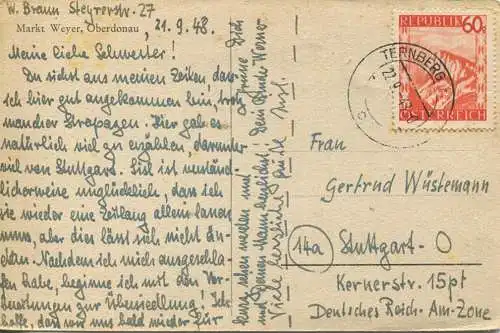 W. Braun Steyrerstr. 27
Markt Weyer, Oberdonau
, 21.9.48.
Meine liebe Schwester!
Du siehst aus meinen Zeilen dass
ich hier gut angekommen bin, trotz
mancher Strapazen. Hier gab es
natürlich viel zu erzählen, darunter
viel von Stuttgart. Sisl ist verständ-
licherweise unglücklich, dass ich
sie wieder eine Zeitlang allein lassen
muss, aber dies lässt sich nicht än-
dern. Nachdem ich mich ausgeschla-
fen habe, beginne ich mit den Vor-
bereitungen zur Übersiedlung! Ich
hoffe, dass wir uns bald wieder für
sehen werden und grüne Dich
und Deinen Mann herzlichst! Dein Bruder Werner
Viele herzliche Grüße Sisl.
REPUBLIK
60g
ÖSTERREICH
TERNBERG
22.9.48
Frau
Gertrud Wüstemann
14a Stuttgart-O
Kernerstr. 15pt
Deutsches Reich- Am-Zone